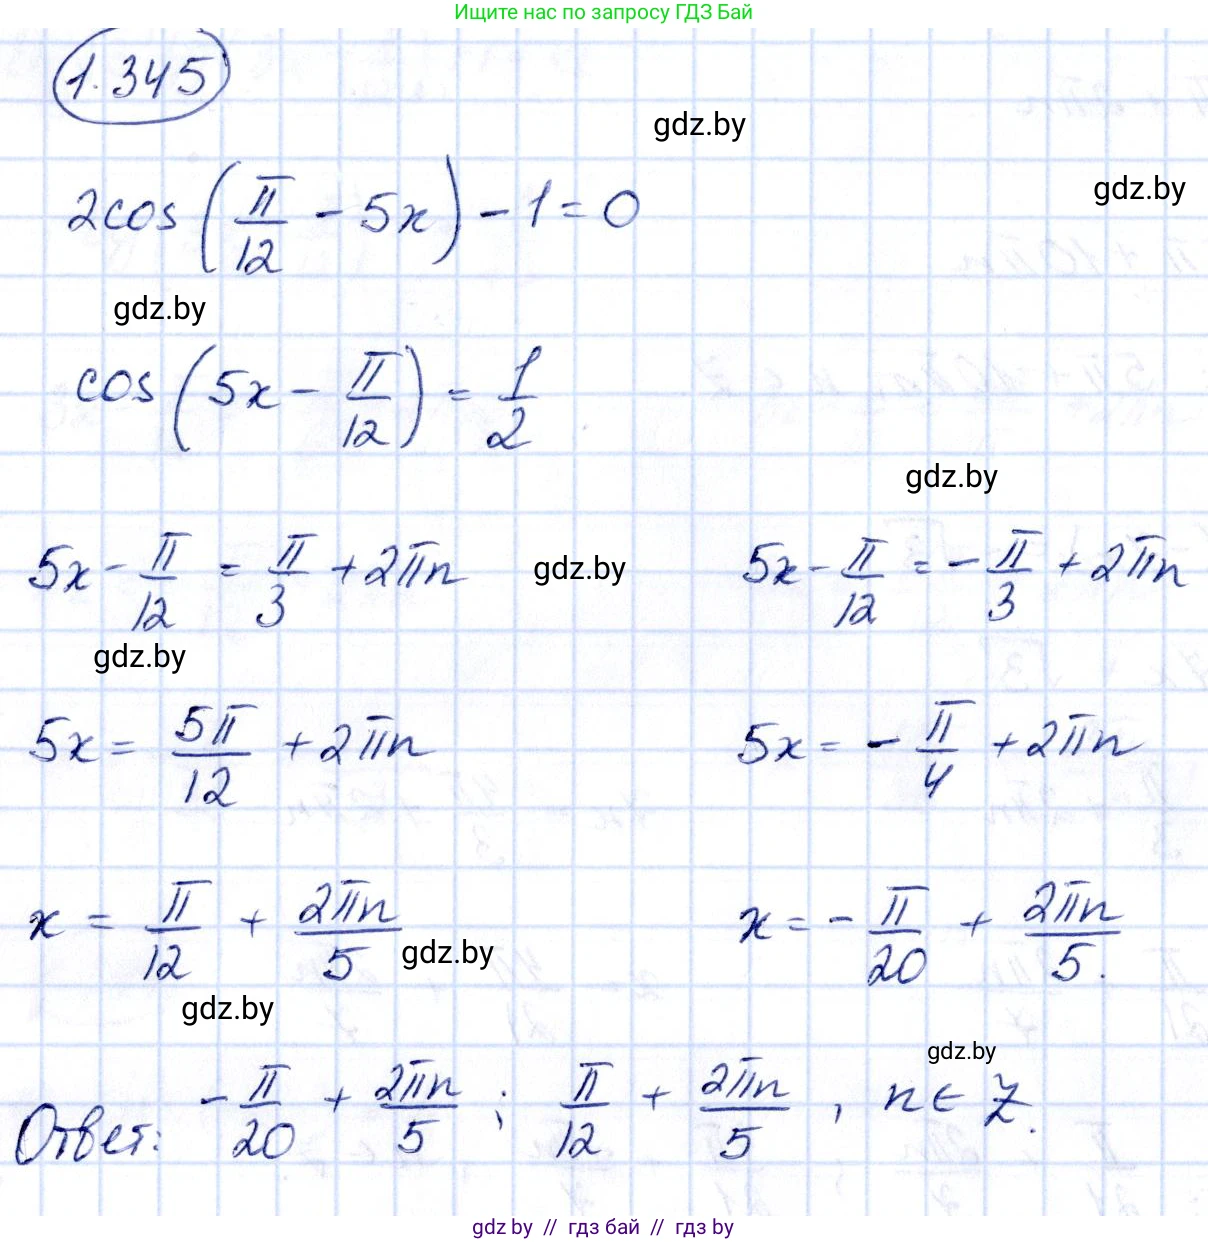 Ищите нас по запросу ГДЗ Бай
1.345
gdz.by
gdz.by
2cos(π/12 - 5x) - 1 = 0
gdz.by
cos(5x - π/12) = 1/2
gdz.by
5x - π/12 = π/3 + 2πn gdz.by 5x - π/12 = -π/3 + 2πn
gdz.by
5x = 5π/12 + 2πn 5x = -π/4 + 2πn
x = π/12 + 2πn/5 gdz.by x = -π/20 + 2πn/5.
gdz.by
gdz.by
Ответ: -π/20 + 2πn/5 ; π/12 + 2πn/5 , n ∈ Z.
gdz.by // гдз бай // гдз by